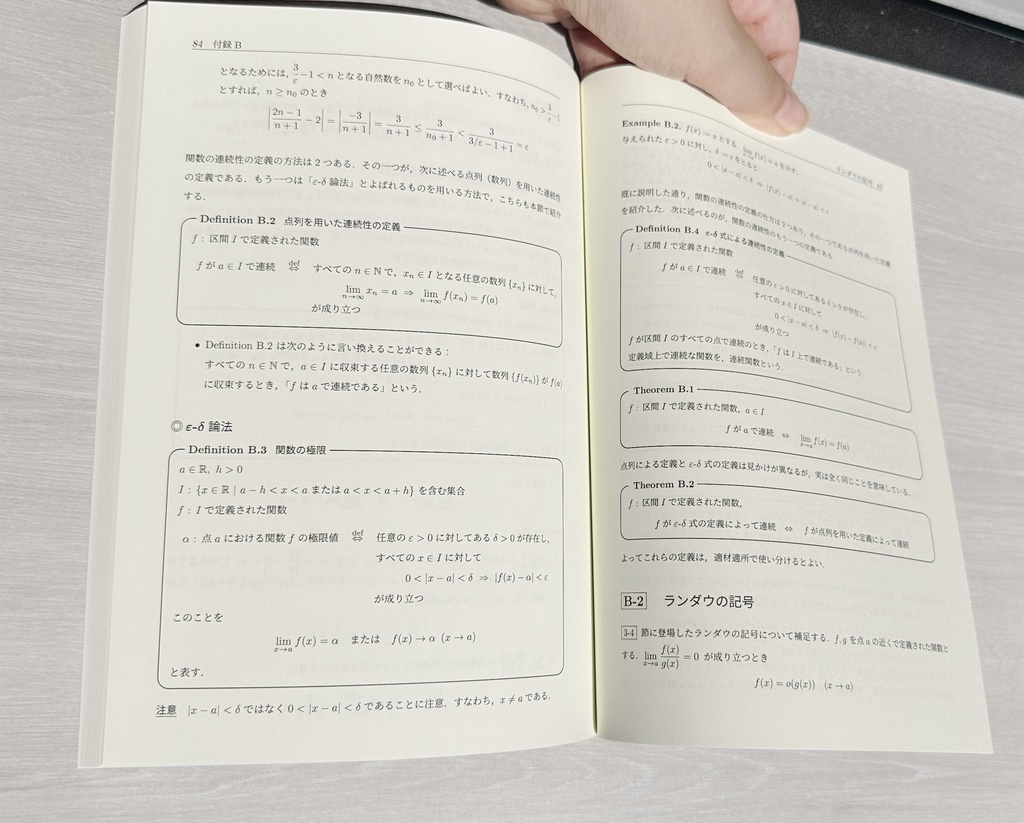 84 付録 B
となるためには, 3/ε − 1 < n となる自然数を n₀ として選べばよい. すなわち, n₀ > 3/ε − 1
とすれば, n ≥ n₀ のとき
|(2n − 1)/(n + 1) − 2| = |−3/(n + 1)| = 3/(n + 1) ≤ 3/(n₀ + 1) < 3/(3/ε − 1 + 1) = ε
関数の連続性の定義の方法は 2 つある. その一つが, 次に述べる点列 (数列) を用いた連続性
の定義である. もう一つは「ε-δ 論法」とよばれるものを用いる方法で, こちらも本節で紹介
する.
Definition B.2 点列を用いた連続性の定義
f : 区間 I で定義された関数
f が a ∈ I で連続 def⇔ すべての n ∈ ℕ で, xₙ ∈ I となる任意の数列 {xₙ} に対して,
lim_{n→∞} xₙ = a ⇒ lim_{n→∞} f(xₙ) = f(a)
が成り立つ
• Definition B.2 は次のように言い換えることができる :
すべての n ∈ ℕ で, a ∈ I に収束する任意の数列 {xₙ} に対して数列 {f(xₙ)} が f(a)
に収束するとき, 「f は a で連続である」という.
◎ ε-δ 論法
Definition B.3 関数の極限
a ∈ ℝ, h > 0
I : {x ∈ ℝ | a − h < x < a または a < x < a + h} を含む集合
f : I で定義された関数
α : 点 a における関数 f の極限値 def⇔ 任意の ε > 0 に対してある δ > 0 が存在し,
すべての x ∈ I に対して
0 < |x − a| < δ ⇒ |f(x) − α| < ε
が成り立つ
このことを
lim_{x→a} f(x) = α または f(x) → α (x → a)
と表す.
注意 |x − a| < δ ではなく 0 < |x − a| < δ であることに注意. すなわち, x ≠ a である.
ランダウの記号 85
Example B.2. f(x) := x とする. lim_{x→a} f(x) = a を示す.
与えられた ε > 0 に対し, δ := ε をとると
0 < |x − a| < δ ⇒ |f(x) − a| = |x − a| < ε
既に説明した通り, 関数の連続性の定義の仕方は 2 つあり, その一つである点列を用いた定義
を紹介した. 次に述べるのが, 関数の連続性のもう一つの定義である.
Definition B.4 ε-δ 式による連続性の定義
f : 区間 I で定義された関数
f が a ∈ I で連続 def⇔ 任意の ε > 0 に対してある δ > 0 が存在し,
すべての x ∈ I に対して
0 < |x − a| < δ ⇒ |f(x) − f(a)| < ε
が成り立つ
f が区間 I のすべての点で連続のとき, 「f は I 上で連続である」という.
定義域上で連続な関数を, 連続関数という.
Theorem B.1
f : 区間 I で定義された関数, a ∈ I
f が a で連続 ⇔ lim_{x→a} f(x) = f(a)
点列による定義と ε-δ 式の定義は見かけが異なるが, 実は全く同じことを意味している.
Theorem B.2
f : 区間 I で定義された関数,
f が ε-δ 式の定義によって連続 ⇔ f が点列を用いた定義によって連続
よってこれらの定義は, 適材適所で使い分けるとよい.
B-2 ランダウの記号
3-4 節に登場したランダウの記号について補足する. f, g を点 a の近くで定義された関数と
する. lim_{x→a} f(x)/g(x) = 0 が成り立つとき
f(x) = o(g(x)) (x → a)